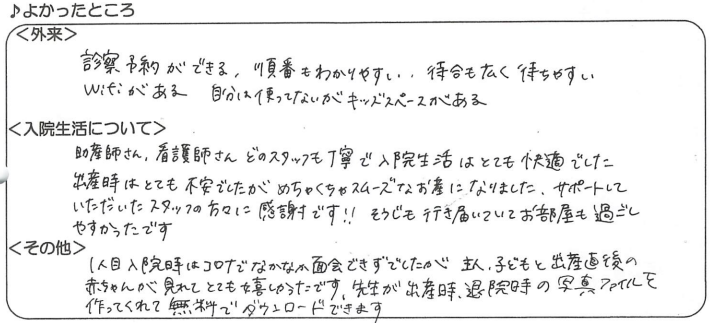 ♪よかったところ
＜外来＞
診察予約ができる, 順番もわかりやすい、待合も広く待ちやすい
Wifiがある 自分は使ってないがキッズスペースがある
＜入院生活について＞
助産師さん, 看護師さん どのスタッフも丁寧で入院生活はとても快適でした
出産時はとても不安でしたがめちゃくちゃスムーズなお産になりました、サポートして
いただいたスタッフの方々に感謝です!! そうじも行き届いていてお部屋も過ごし
やすかったです
＜その他＞
1人目入院時はコロナでなかなか面会できずでしたが 主人, 子どもと出産直後の
赤ちゃんが見れてとても嬉しかったです, 先生が出産時、退院時の写真ファイルを
作ってくれて無料でダウンロードできます